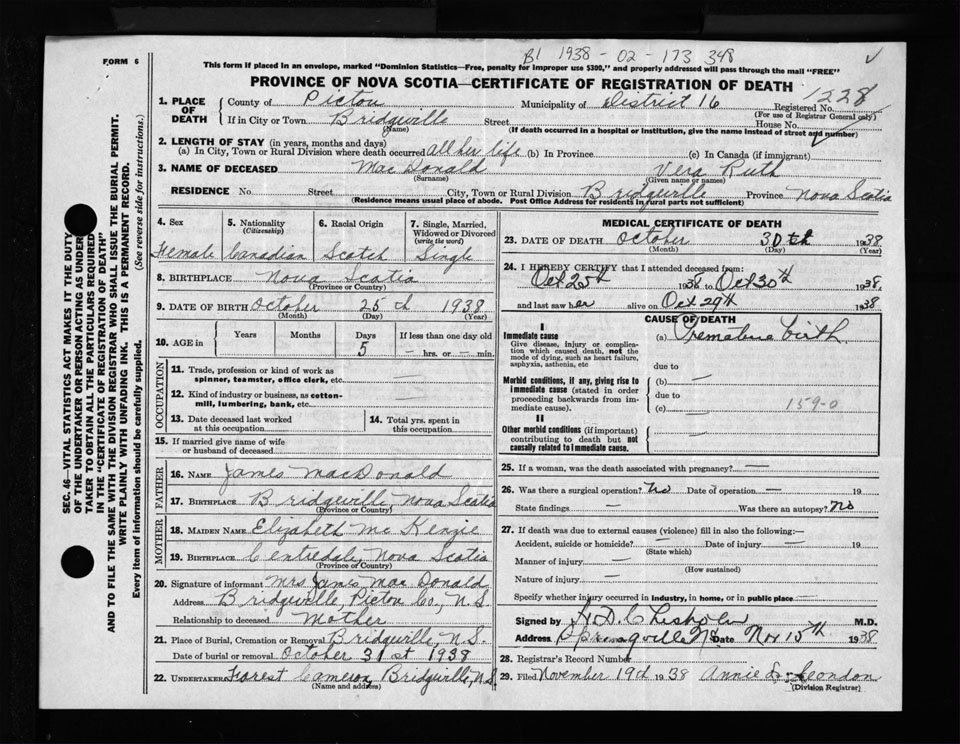 B1 1938 - 02 - 173 348
FORM 6
This form if placed in an envelope, marked "Dominion Statistics—Free, penalty for improper use $300," and properly addressed will pass through the mail "FREE"
PROVINCE OF NOVA SCOTIA—CERTIFICATE OF REGISTRATION OF DEATH
1. PLACE OF DEATH County of Pictou Municipality of District 16 Registered No. 1228
(For use of Registrar General only)
If in City or Town Bridgeville Street House No.
(Name) (If death occurred in a hospital or institution, give the name instead of street and number)
2. LENGTH OF STAY (in years, months and days)
(a) In City, Town or Rural Division where death occurred all her life (b) In Province (c) In Canada (if immigrant)
3. NAME OF DECEASED MacDonald Vera Ruth
(Surname) (Given name or names)
RESIDENCE No. Street City, Town or Rural Division Bridgeville Province Nova Scotia
(Residence means usual place of abode. Post Office Address for residents in rural parts not sufficient)
SEC. 46—VITAL STATISTICS ACT MAKES IT THE DUTY
OF THE UNDERTAKER OR PERSON ACTING AS UNDER-
TAKER TO OBTAIN ALL THE PARTICULARS REQUIRED
IN THE "CERTIFICATE OF REGISTRATION OF DEATH"
AND TO FILE THE SAME WITH THE DIVISION REGISTRAR WHO SHALL ISSUE THE BURIAL PERMIT.
WRITE PLAINLY WITH UNFADING INK. THIS IS A PERMANENT RECORD.
Every item of information should be carefully supplied. (See reverse side for instructions.)
4. Sex 5. Nationality (Citizenship) 6. Racial Origin 7. Single, Married, Widowed or Divorced (write the word)
Female Canadian Scotch Single
8. BIRTHPLACE Nova Scotia
(Province or Country)
9. DATE OF BIRTH October 25th 1938
(Month) (Day) (Year)
10. AGE in Years Months Days If less than one day old
5 — hrs. or — min.
OCCUPATION
11. Trade, profession or kind of work as
spinner, teamster, office clerk, etc. —
12. Kind of industry or business, as cotton-
mill, lumbering, bank, etc. —
13. Date deceased last worked at this occupation
14. Total yrs. spent in this occupation
15. If married give name of wife
or husband of deceased
FATHER
16. NAME James MacDonald
17. BIRTHPLACE Bridgeville, Nova Scotia
(Province or Country)
MOTHER
18. MAIDEN NAME Elizabeth McKenzie
19. BIRTHPLACE Centredale Nova Scotia
(Province or Country)
20. Signature of informant Mrs James MacDonald
Address Bridgeville, Pictou Co., N.S.
Relationship to deceased Mother
21. Place of Burial, Cremation or Removal Bridgeville N.S.
Date of burial or removal October 31st 1938
22. UNDERTAKER Forest Cameron, Bridgeville, N.S.
(Name and address)
MEDICAL CERTIFICATE OF DEATH
23. DATE OF DEATH October 30th 1938
(Month) (Day) (Year)
24. I HEREBY CERTIFY that I attended deceased from:
Oct 25th 1938 to Oct 30th 1938,
and last saw her alive on Oct 29th 1938
CAUSE OF DEATH
I
Immediate cause (a) Premature birth
Give disease, injury or complica-
tion which caused death, not the
mode of dying, such as heart failure,
asphyxia, asthenia, etc
due to
Morbid conditions, if any, giving rise to (b) —
immediate cause (stated in order
proceeding backwards from im-
mediate cause).
due to
(c) — 159-0
II
Other morbid conditions (if important)
contributing to death but not
causally related to immediate cause.
25. If a woman, was the death associated with pregnancy? —
26. Was there a surgical operation? no Date of operation — 19
State findings — Was there an autopsy? no
27. If death was due to external causes (violence) fill in also the following:—
Accident, suicide or homicide? — Date of injury — 19
(State which)
Manner of injury —
(How sustained)
Nature of injury —
Specify whether injury occurred in industry, in home, or in public place —
Signed by H.D. Chisholm M.D.
Address Springville N.S. Date Nov 15th 1938
28. Registrar's Record Number
29. Filed November 19th 1938 Annie
(Division Registrar)